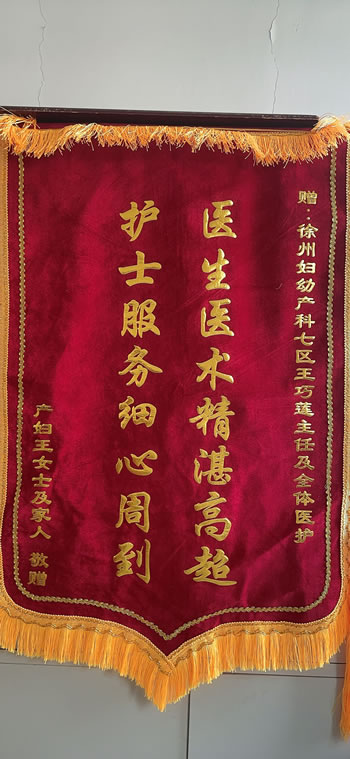 赠：徐州妇幼产科七区王巧莲主任及全体医护
医生医术精湛高超
护士服务细心周到
产妇王女士及家人 敬赠